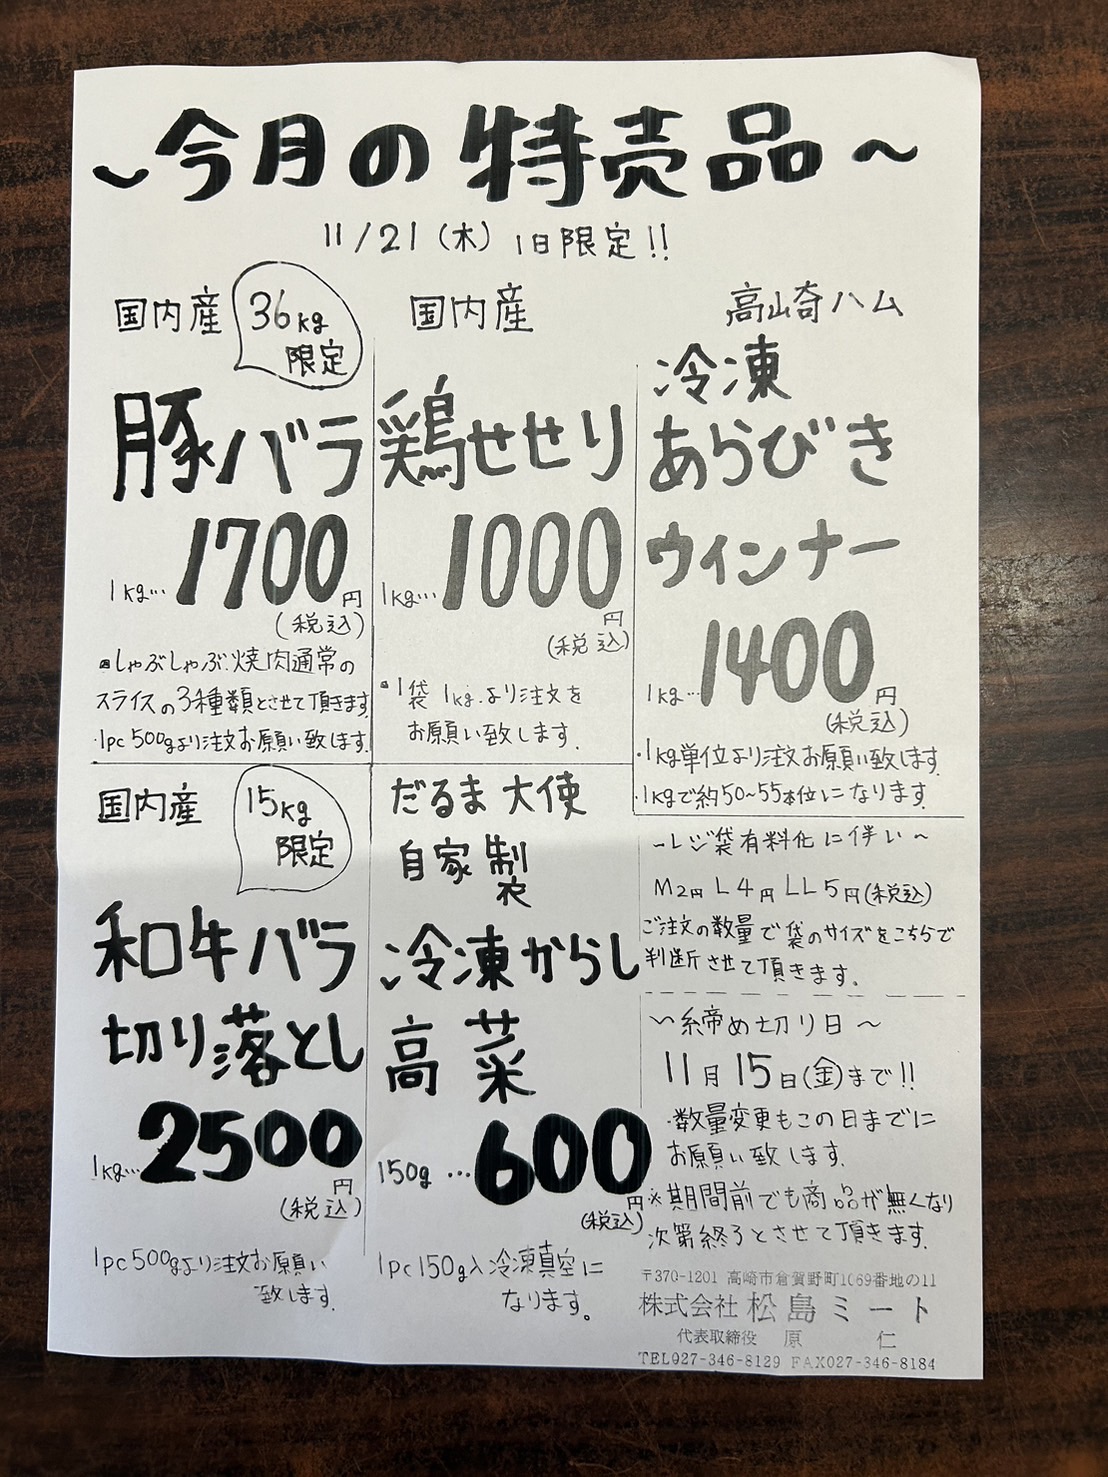 ～今月の特売品～
11/21(木) 1日限定!!
国内産
36kg
限定
豚バラ
1kg…1700円
(税込)
・しゃぶしゃぶ.焼肉通常の
スライスの3種類とさせて頂きます.
・1pc 500gより注文お願い致します.
国内産
鶏せせり
1kg…1000円
(税込)
・1袋 1kg.より注文を
お願い致します.
高崎ハム
冷凍
あらびき
ウィンナー
1kg…1400円
(税込)
・1kg単位より注文お願い致します.
・1kgで約50~55本位になります.
国内産
15kg
限定
和牛バラ
切り落とし
1kg…2500円
(税込)
1pc500gより注文お願い
致します.
だるま大使
自家製
冷凍からし
高菜
150g…600円
(税込)
1pc150g入冷凍真空に
なります。
～レジ袋有料化に伴い～
M2円 L4円 LL5円(税込)
ご注文の数量で袋のサイズをこちらで
判断させて頂きます.
～締め切り日～
11月15日(金)まで!!
・数量変更もこの日までに
お願い致します.
※期間前でも商品が無くなり
次第終了とさせて頂きます.
〒370-1201 高崎市倉賀野町1069番地の11
株式会社 松島ミート
代表取締役 原 仁
TEL027-346-8129 FAX027-346-8184